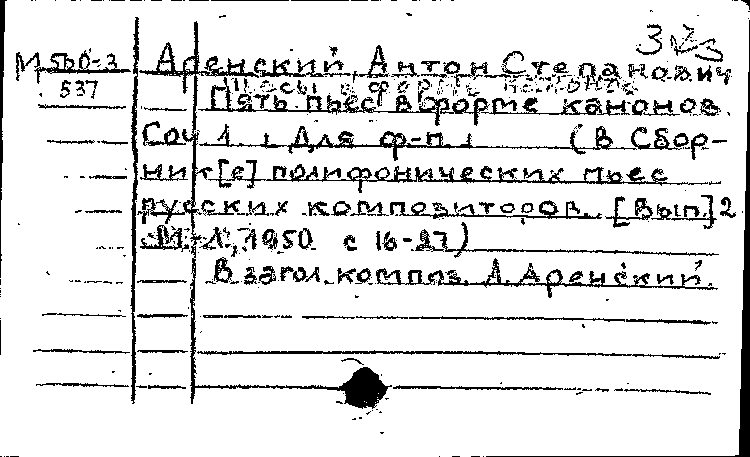 323
М 560-3 Аренский, Антон Степанович
537 Пьесы в форме канонов
Пять пьес в форме канонов.
Соч 1. Для ф-п. (В Сбор-
ник[е] полифонических пьес
русских композиторов. [Вып] 2
М.-Л., 1950 с 16-27)
В загол. композ. А. Аренский.